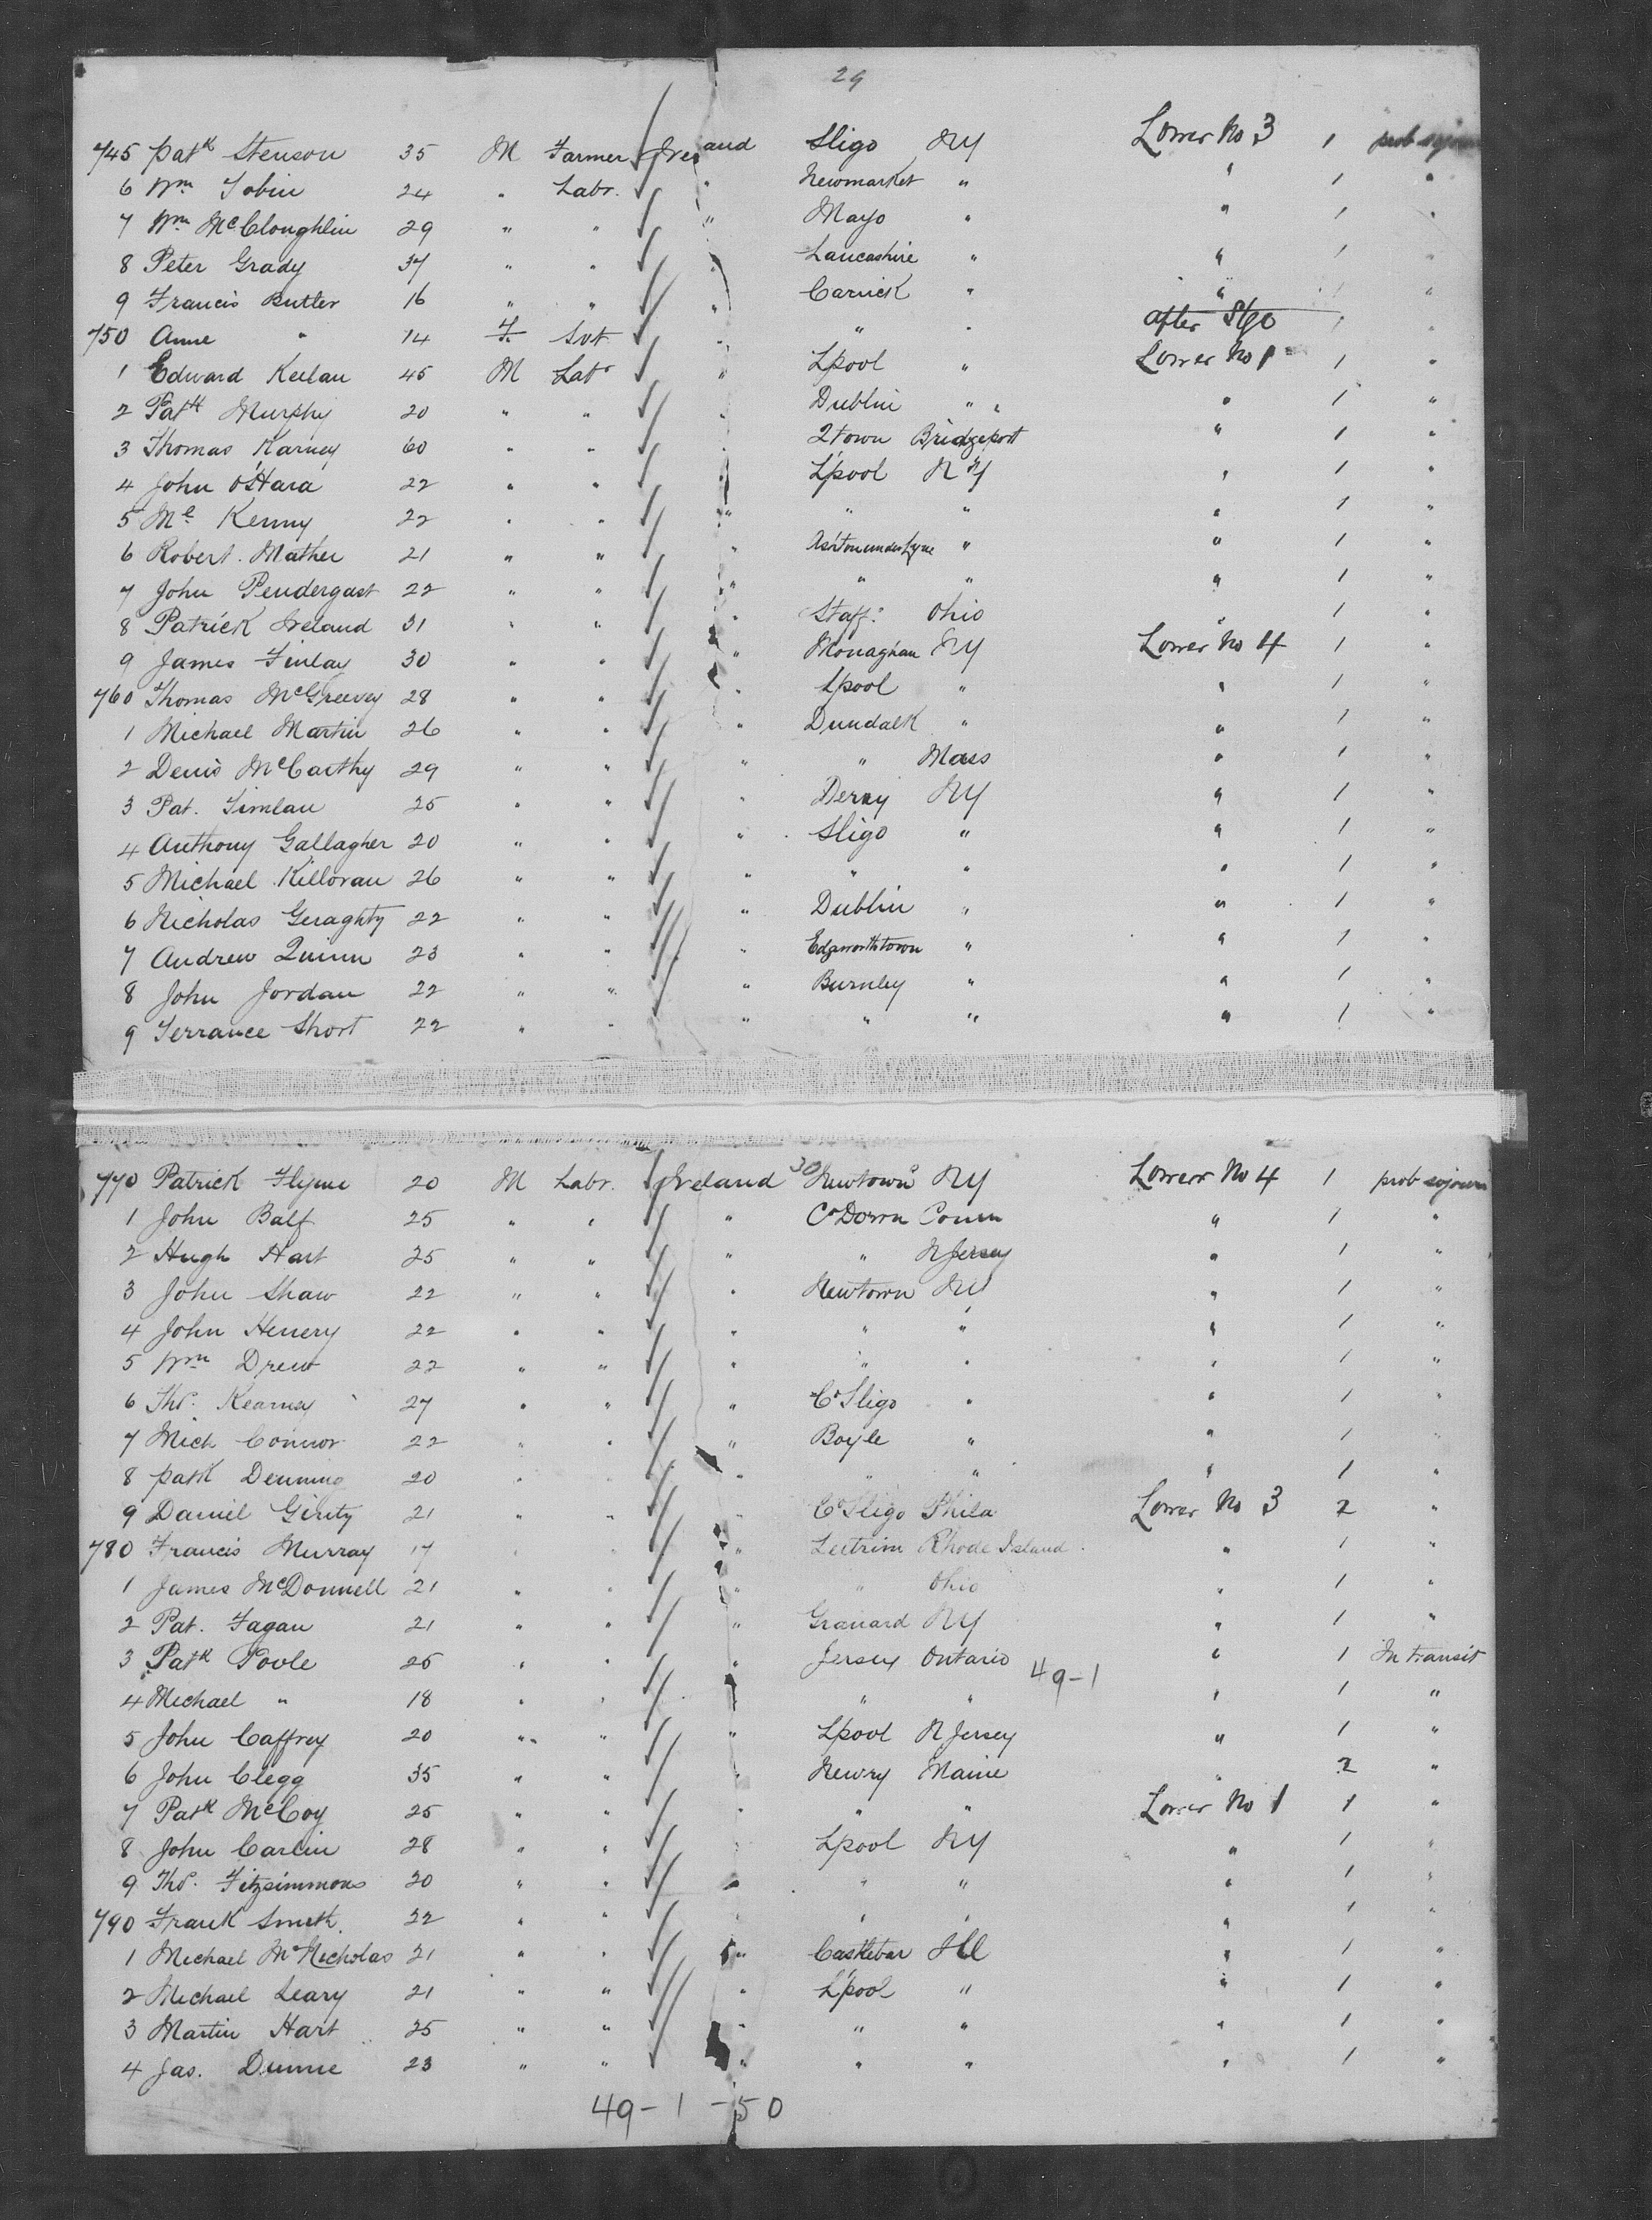 29
745 Patk Stenson 35 M Farmer Ireland Sligo NY Lower No 3 1 prob sojourn
6 Wm Tobin 24 " Labr. " Newmarket " " 1 "
7 Wm McCloughlin 29 " " " Mayo " " 1 "
8 Peter Grady 37 " " " Lancashire " " 1 "
9 Francis Butler 16 " " " Carrick " " 1 "
750 Anne " 14 F. Svt " " " After Stge 1 "
1 Edward Keelan 45 M Labr " Lpool " Lower No 1 1 "
2 Patk Murphy 20 " " " Dublin " " 1 "
3 Thomas Karney 60 " " " Qtown Bridgeport " 1 "
4 John O'Hara 22 " " " L'pool NY " 1 "
5 Ml Kenny 22 " " " " " " 1 "
6 Robert Mather 21 " " " Ashton under Lyne " " 1 "
7 John Pendergast 22 " " " " " " 1 "
8 Patrick Ireland 31 " " " Staff: Ohio " 1 "
9 James Finlay 30 " " " Monaghan NY Lower No 4 1 "
760 Thomas McGreevey 28 " " " Lpool " " 1 "
1 Michael Martin 26 " " " Dundalk " " 1 "
2 Denis McCarthy 29 " " " " Mass " 1 "
3 Pat. Timlan 25 " " " Derry NY " 1 "
4 Anthony Gallagher 20 " " " Sligo " " 1 "
5 Michael Killoran 26 " " " " " " 1 "
6 Nicholas Geraghty 22 " " " Dublin " " 1 "
7 Andrew Quinn 23 " " " Edgworthstown " " 1 "
8 John Jordan 22 " " " Burnley " " 1 "
9 Terrance Short 22 " " " " " " 1 "
30
770 Patrick Flynn 20 M Labr. Ireland Newtown NY Lower No 4 1 prob sojourn
1 John Balf 25 " " " Co Down Conn " 1 "
2 Hugh Hart 25 " " " " N Jersey " 1 "
3 John Shaw 22 " " " Newtown NY " 1 "
4 John Henery 22 " " " " " " 1 "
5 Wm Drew 22 " " " " " " 1 "
6 Thos. Kearney 27 " " " Co Sligo " " 1 "
7 Mich Connor 22 " " " Boyle " " 1 "
8 Patk Denning 20 " " " " " " 1 "
9 Daniel Girity 21 " " " Co Sligo Phila Lower No 3 2 "
780 Francis Murray 17 " " " Leitrim Rhode Island " 1 "
1 James McDonnell 21 " " " " Ohio " 1 "
2 Pat. Fagan 21 " " " Granard NY " 1 "
3 Patk Poole 25 " " " Jersey Ontario 49-1 " 1 In transit
4 Michael " 18 " " " " " " 1 "
5 John Caffrey 20 " " " Lpool N Jersey " 1 "
6 John Clegg 35 " " " Newry Maine " 2 "
7 Patk McCoy 25 " " " " " Lower No 1 1 "
8 John Carlin 28 " " " Lpool NY " 1 "
9 Thos. Fitzsimmons 20 " " " " " " 1 "
790 Frank Smith 22 " " " " " " 1 "
1 Michael McNicholas 21 " " " Castlebar Ill " 1 "
2 Michael Leary 21 " " " L'pool " " 1 "
3 Martin Hart 25 " " " " " " 1 "
4 Jas. Dunne 23 " " " " " " 1 "
49-1-50